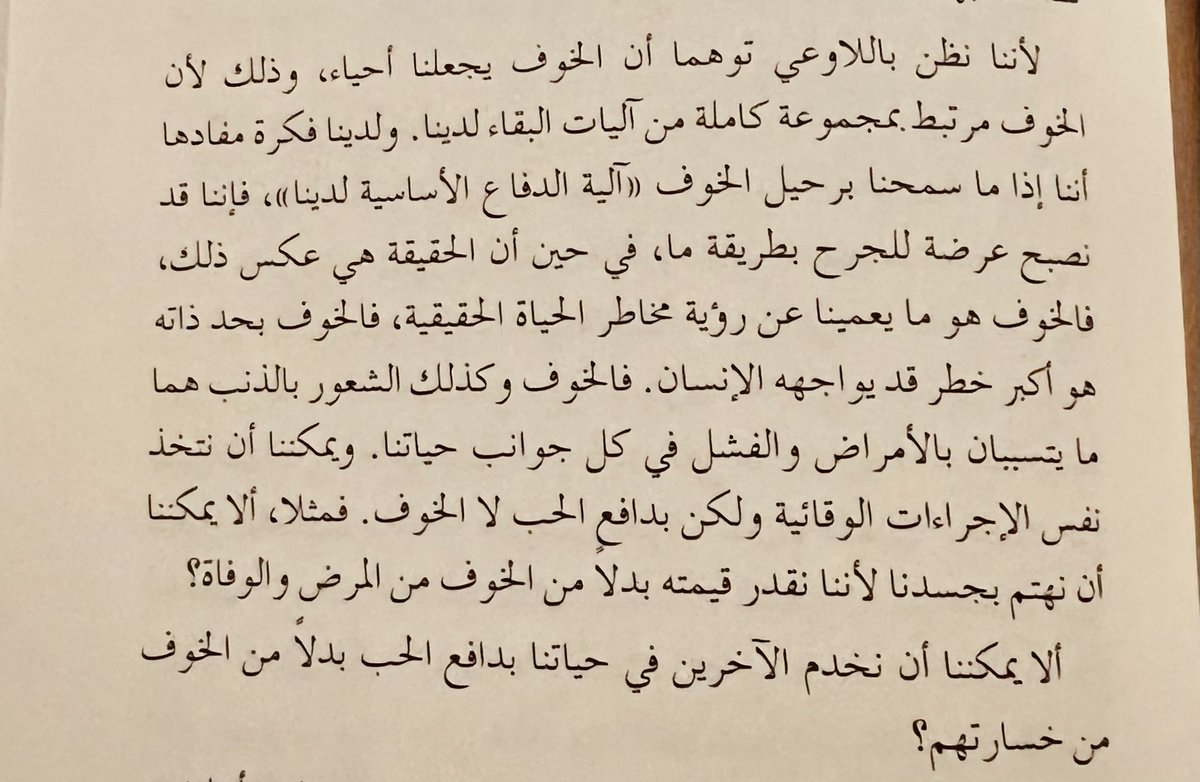 لأننا نظن باللاوعي توهما أن الخوف يجعلنا أحياء، وذلك لأن
الخوف مرتبط بمجموعة كاملة من آليات البقاء لدينا. ولدينا فكرة مفادها
أننا إذا ما سمحنا برحيل الخوف «آلية الدفاع الأساسية لدينا»، فإننا قد
نصبح عرضة للجرح بطريقة ما، في حين أن الحقيقة هي عكس ذلك،
فالخوف هو ما يعمينا عن رؤية مخاطر الحياة الحقيقية، فالخوف بحد ذاته
هو أكبر خطر قد يواجهه الإنسان. فالخوف وكذلك الشعور بالذنب هما
ما يتسببان بالأمراض والفشل في كل جوانب حياتنا. ويمكننا أن نتخذ
نفس الإجراءات الوقائية ولكن بدافع الحب لا الخوف. فمثلا، ألا يمكننا
أن نهتم بجسدنا لأننا نقدر قيمته بدلاً من الخوف من المرض والوفاة؟
ألا يمكننا أن نخدم الآخرين في حياتنا بدافع الحب بدلاً من الخوف
من خسارتهم؟